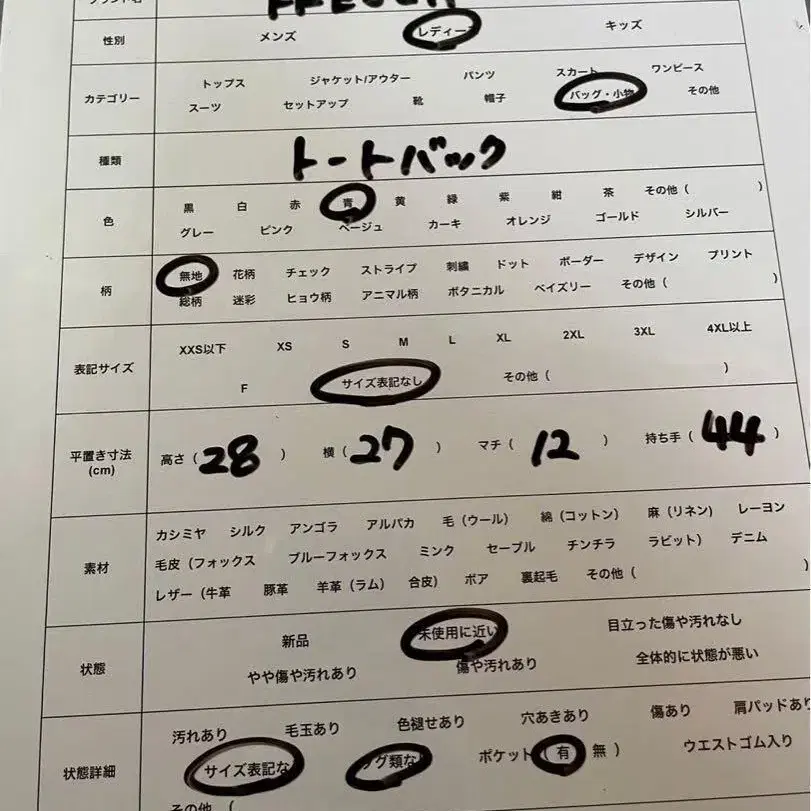 性別 メンズ レディース キッズ
カテゴリー トップス ジャケット/アウター パンツ スカート ワンピース
スーツ セットアップ 靴 帽子 バッグ・小物 その他
種類 トートバック
色 黒 白 赤 青 黄 緑 紫 紺 茶 その他 ( )
グレー ピンク ベージュ カーキ オレンジ ゴールド シルバー
柄 無地 花柄 チェック ストライプ 刺繍 ドット ボーダー デザイン プリント
総柄 迷彩 ヒョウ柄 アニマル柄 ボタニカル ペイズリー その他 ( )
表記サイズ XXS以下 XS S M L XL 2XL 3XL 4XL以上
F サイズ表記なし その他 ( )
平置き寸法 (cm) 高さ ( 28 ) 横 ( 27 ) マチ ( 12 ) 持ち手 ( 44 )
素材 カシミヤ シルク アンゴラ アルパカ 毛 (ウール) 綿 (コットン) 麻 (リネン) レーヨン
毛皮 (フォックス ブルーフォックス ミンク セーブル チンチラ ラビット) デニム
レザー (牛革 豚革 羊革 (ラム) 合皮) ボア 裏起毛 その他 ( )
状態 新品 未使用に近い 目立った傷や汚れなし
やや傷や汚れあり 傷や汚れあり 全体的に状態が悪い
状態詳細 汚れあり 毛玉あり 色褪せあり 穴あきあり 傷あり 肩パッドあり
サイズ表記な タグ類な ポケット ( 有 無 ) ウエストゴム入り
その他 (